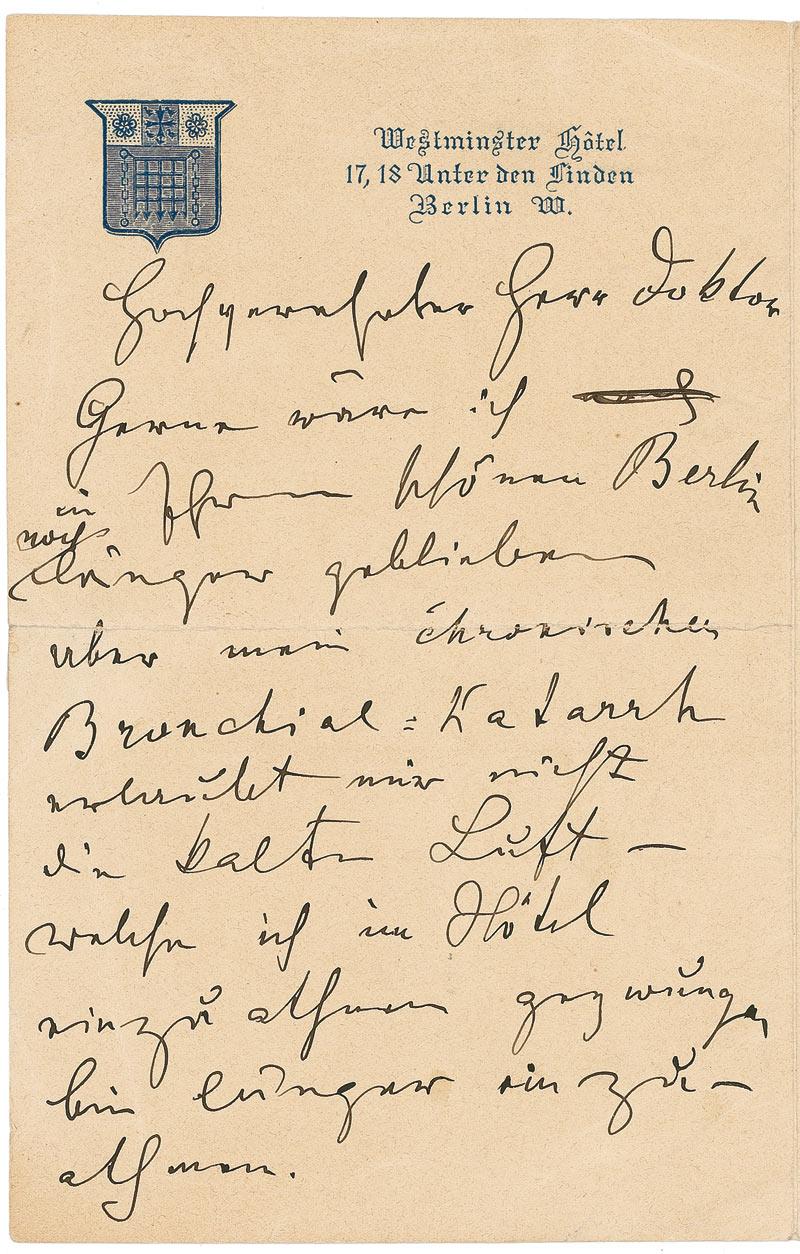 Westminster Hôtel
17, 18 Unter den Linden
Berlin W.
Hochverehrter Herr Doktor
Gerne wäre ich
in Ihrem schönen Berlin
noch
länger geblieben
aber mein chronischer
Bronchial=Katarrh
erlaubt mir nicht
die kalte Luft –
welche ich im Hôtel
einzuathmen gezwungen
bin länger einzu–
athmen.